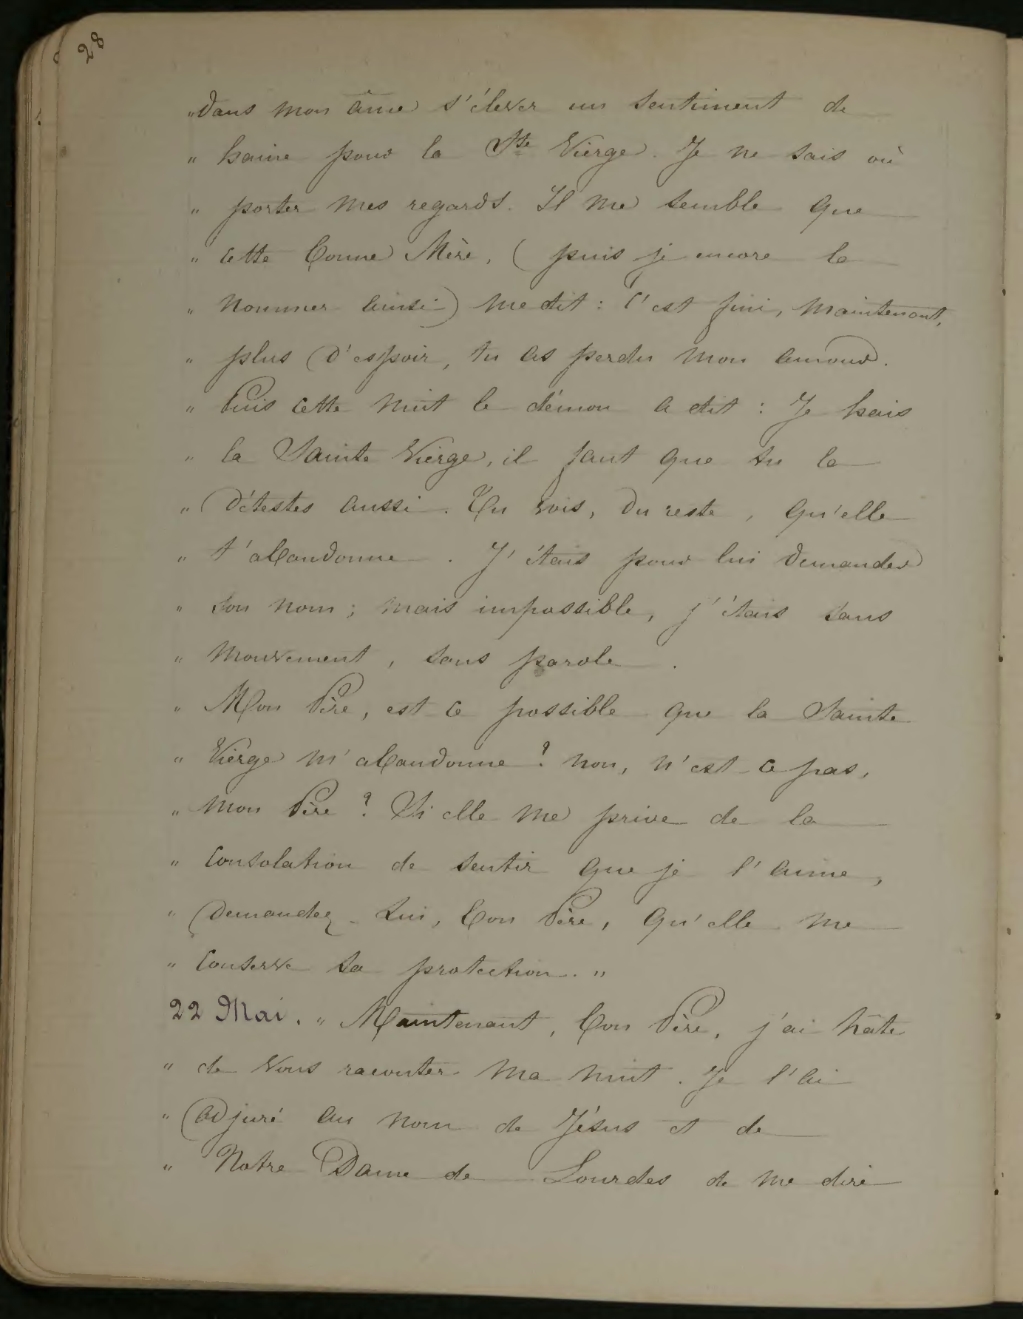 28
„ dans mon âme s'élever un sentiment de
„ haine pour la Ste Vierge. Je ne sais où
„ porter mes regards. Il me semble que
„ cette bonne Mère, (puis je encore la
„ nommer ainsi) me dit : c'est fini, maintenant,
„ plus d'espoir, tu as perdu mon amour.
„ Puis cette nuit le démon a dit : Je hais
„ la Sainte Vierge, il faut que tu la
„ détestes aussi. Tu vois, du reste, qu'elle
„ t'abandonne. J'étais pour lui demander
„ son nom ; mais impossible, j'étais sans
„ mouvement, sans parole.
„ Mon Père, est-ce possible que la Sainte
„ Vierge m'abandonne ? non, n'est-ce pas,
„ mon Père ? Si elle me prive de la
„ consolation de sentir que je l'aime,
„ demandez-lui, bon Père, qu'elle me
„ conserve sa protection. „
22 Mai. „ Maintenant, bon Père, j'ai hâte
„ de vous raconter ma nuit. Je l'ai
„ adjuré au nom de Jésus et de
„ Notre Dame de Lourdes de me dire